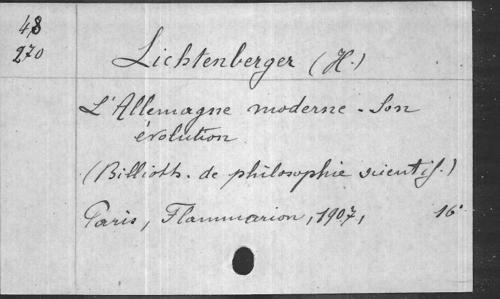 48
270
Lichtenberger (H.)
L'Allemagne moderne - Son
évolution
(Billioth. de philosophie scientif.)
Paris, Flammarion, 1907, 16°